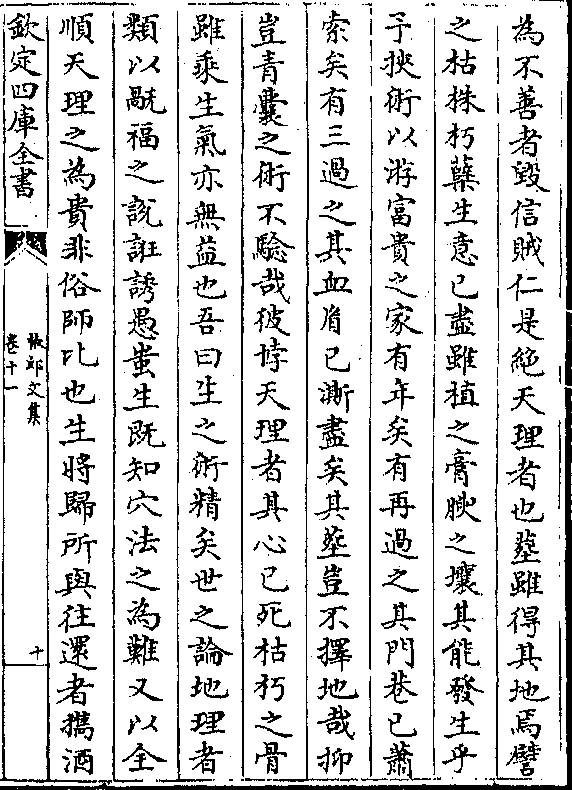 為不善者毀信賊仁是絕天理者也塟雖得其地焉譬
之枯株朽蘖生意已盡雖植之膏腴之壤其能發生乎
予挾術以游富貴之家有年矣有再過之其門巷已蕭
索矣有三過之其血食已漸盡矣其塟豈不擇地哉抑
豈青囊之術不驗哉彼悖天理者其心已死枯朽之骨
雖乘生氣亦無益也吾曰生之術精矣世之論地理者
類以翫福之說誑誘愚蚩生既知穴法之為難又以全
順天理之為貴非俗師比也生將歸所與往還者攜酒
欽定四庫全書
文集
卷十一
十